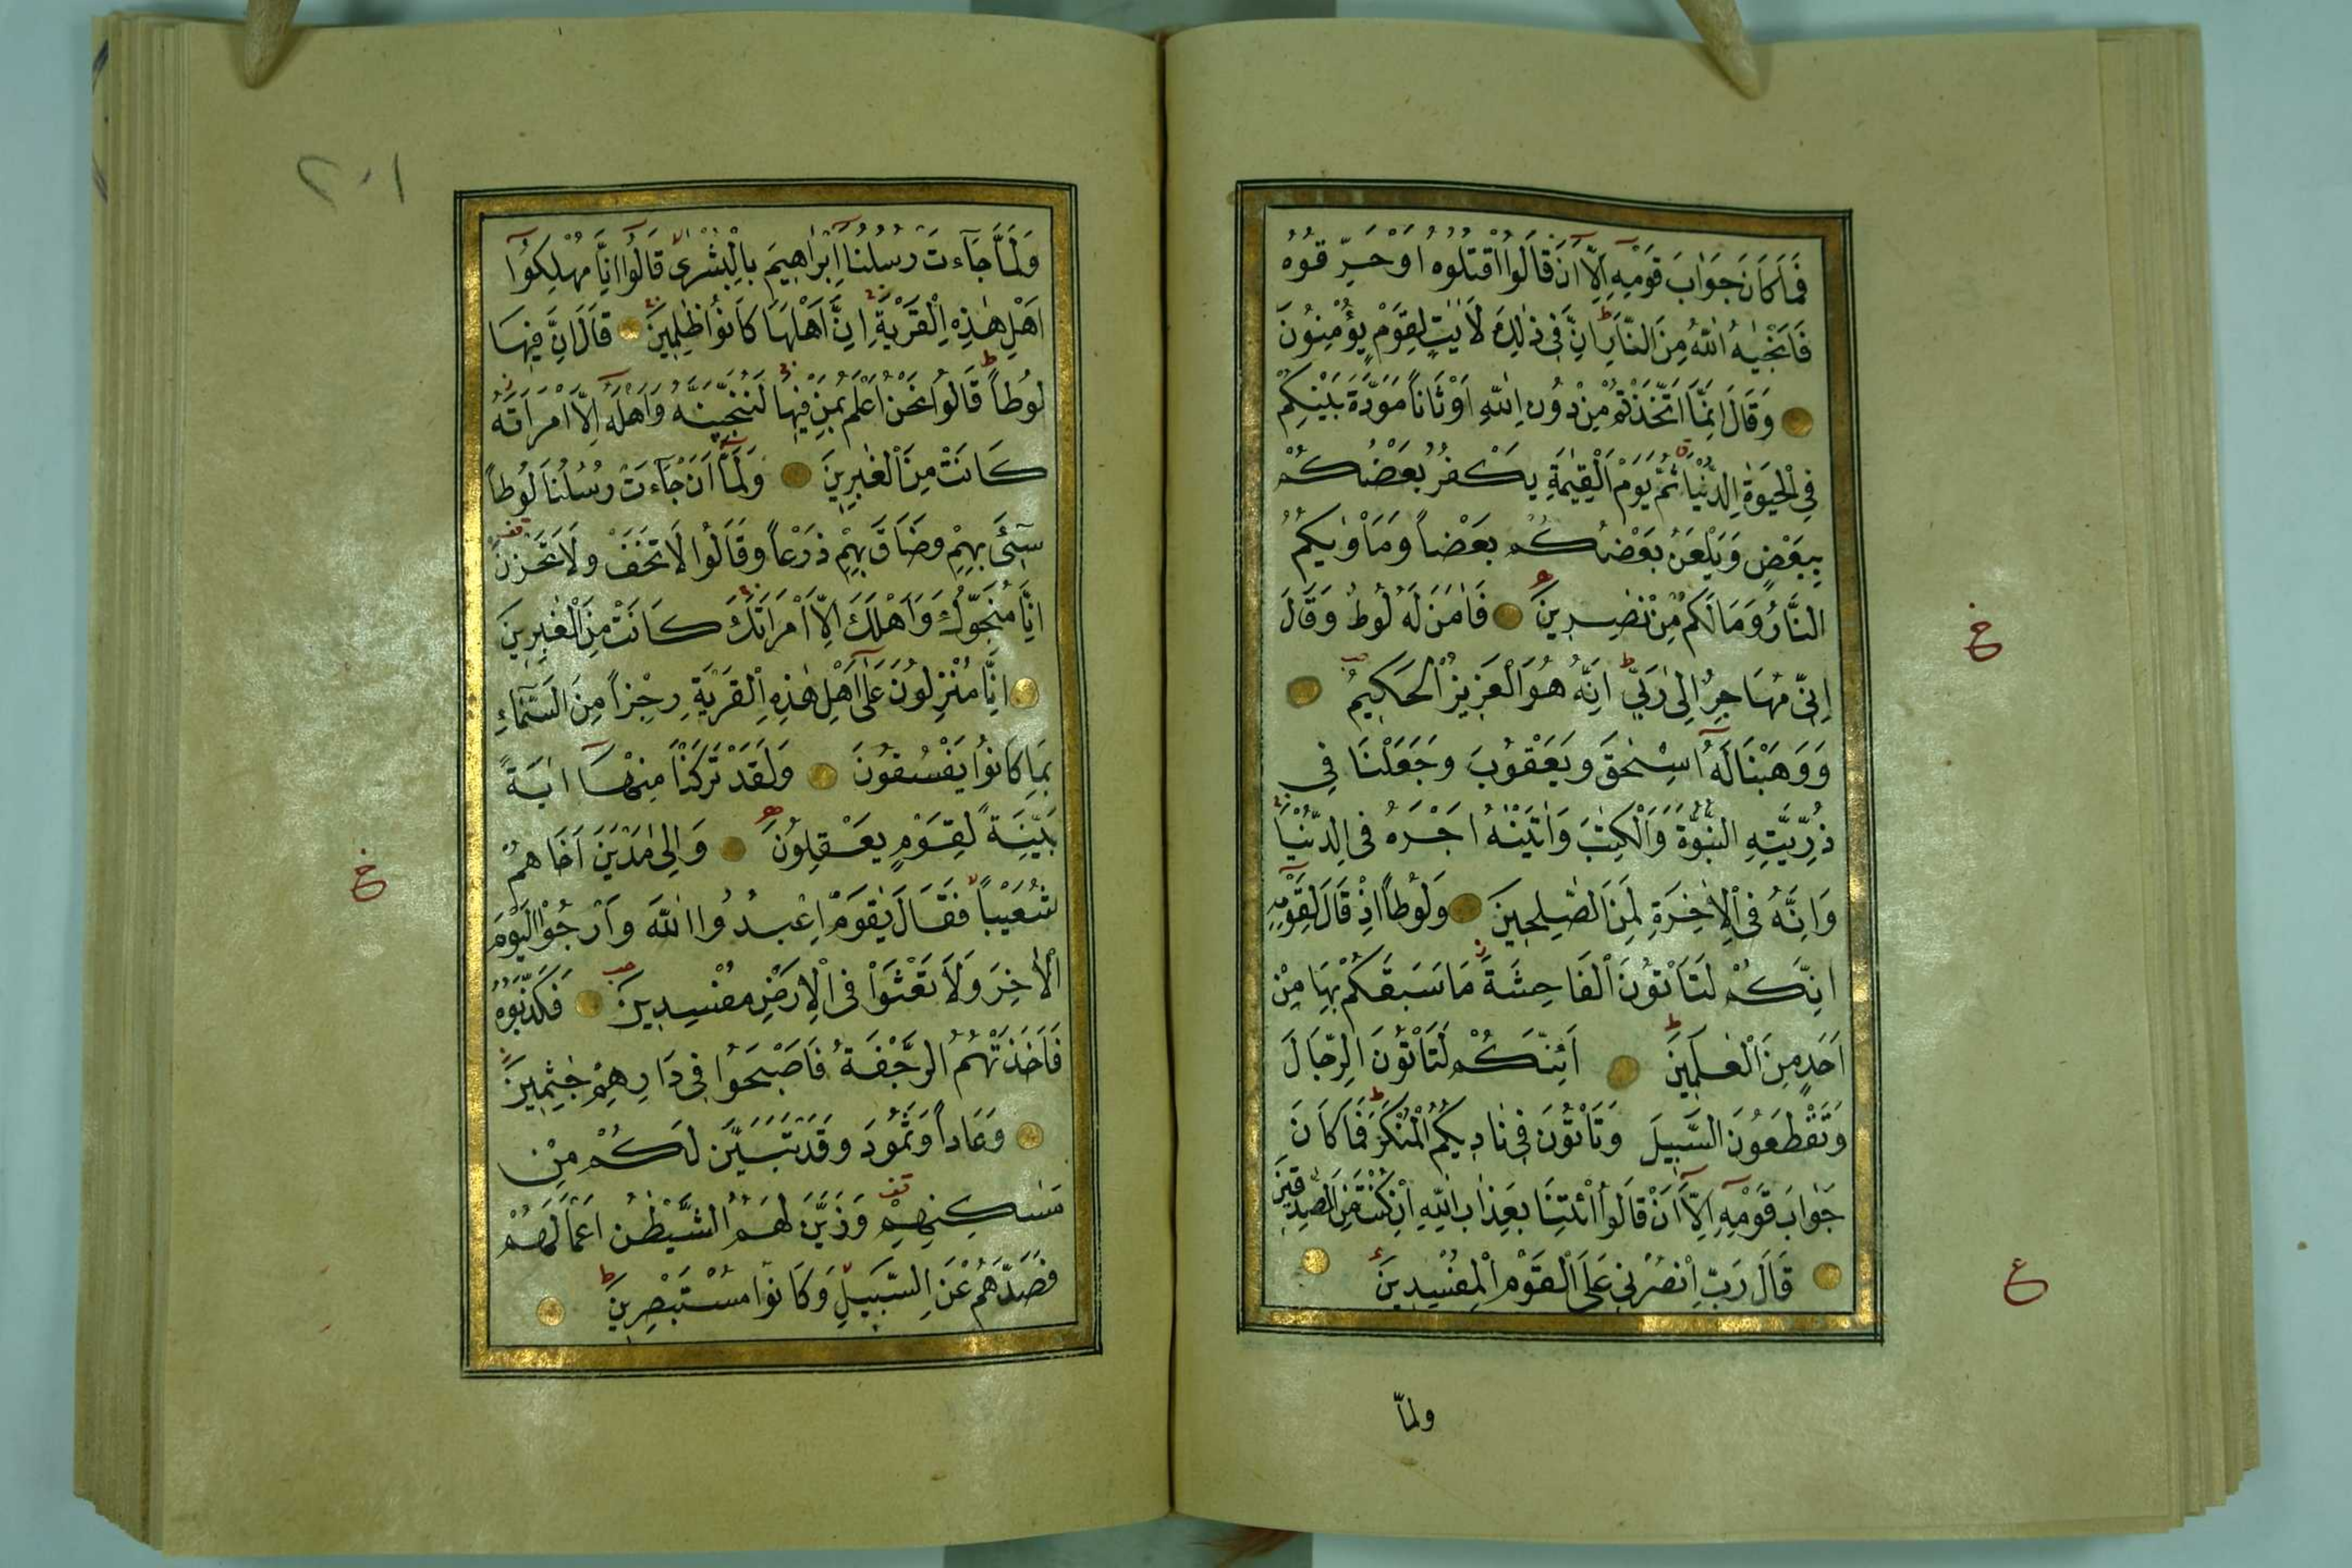 فَمَا كَانَ جَوَابَ قَوْمِهِ اِلَّا اَنْ قَالُوا اقْتُلُوهُ اَوْ حَرِّقُوهُ
فَاَنْجٰيهُ اللّٰهُ مِنَ النَّارِ اِنَّ فِي ذٰلِكَ لَاٰيٰتٍ لِقَوْمٍ يُؤْمِنُونَ
وَقَالَ اِنَّمَا اتَّخَذْتُمْ مِنْ دُونِ اللّٰهِ اَوْثَانًا مَوَدَّةَ بَيْنِكُمْ
فِي الْحَيٰوةِ الدُّنْيَا ثُمَّ يَوْمَ الْقِيٰمَةِ يَكْفُرُ بَعْضُكُمْ
بِبَعْضٍ وَيَلْعَنُ بَعْضُكُمْ بَعْضًا وَمَاْوٰيكُمُ
النَّارُ وَمَا لَكُمْ مِنْ نٰصِرِينَ فَاٰمَنَ لَهُ لُوطٌ وَقَالَ
اِنِّي مُهَاجِرٌ اِلٰى رَبِّي اِنَّهُ هُوَ الْعَزِيزُ الْحَكِيمُ
وَوَهَبْنَا لَهُ اِسْحٰقَ وَيَعْقُوبَ وَجَعَلْنَا فِي
ذُرِّيَّتِهِ النُّبُوَّةَ وَالْكِتٰبَ وَاٰتَيْنٰهُ اَجْرَهُ فِي الدُّنْيَا
وَاِنَّهُ فِي الْاٰخِرَةِ لَمِنَ الصّٰلِحِينَ وَلُوطًا اِذْ قَالَ لِقَوْمِهِ
اِنَّكُمْ لَتَاْتُونَ الْفَاحِشَةَ مَا سَبَقَكُمْ بِهَا مِنْ
اَحَدٍ مِنَ الْعٰلَمِينَ اَئِنَّكُمْ لَتَاْتُونَ الرِّجَالَ
وَتَقْطَعُونَ السَّبِيلَ وَتَاْتُونَ فِي نَادِيكُمُ الْمُنْكَرَ فَمَا كَانَ
جَوَابَ قَوْمِهِ اِلَّا اَنْ قَالُوا ائْتِنَا بِعَذَابِ اللّٰهِ اِنْ كُنْتَ مِنَ الصّٰدِقِينَ
قَالَ رَبِّ انْصُرْنِي عَلَى الْقَوْمِ الْمُفْسِدِينَ
ولمّا
خ
ع
٢٠١
وَلَمَّا جَآءَتْ رُسُلُنَا اِبْرٰهِيمَ بِالْبُشْرٰى قَالُوا اِنَّا مُهْلِكُوا
اَهْلِ هٰذِهِ الْقَرْيَةِ اِنَّ اَهْلَهَا كَانُوا ظٰلِمِينَ قَالَ اِنَّ فِيهَا
لُوطًا قَالُوا نَحْنُ اَعْلَمُ بِمَنْ فِيهَا لَنُنَجِّيَنَّهُ وَاَهْلَهُ اِلَّا امْرَاَتَهُ
كَانَتْ مِنَ الْغٰبِرِينَ وَلَمَّا اَنْ جَآءَتْ رُسُلُنَا لُوطًا
سِىٓءَ بِهِمْ وَضَاقَ بِهِمْ ذَرْعًا وَقَالُوا لَا تَخَفْ وَلَا تَحْزَنْ
اِنَّا مُنَجُّوكَ وَاَهْلَكَ اِلَّا امْرَاَتَكَ كَانَتْ مِنَ الْغٰبِرِينَ
اِنَّا مُنْزِلُونَ عَلٰى اَهْلِ هٰذِهِ الْقَرْيَةِ رِجْزًا مِنَ السَّمَآءِ
بِمَا كَانُوا يَفْسُقُونَ وَلَقَدْ تَرَكْنَا مِنْهَا اٰيَةً
بَيِّنَةً لِقَوْمٍ يَعْقِلُونَ وَاِلٰى مَدْيَنَ اَخَاهُمْ
شُعَيْبًا فَقَالَ يٰقَوْمِ اعْبُدُوا اللّٰهَ وَارْجُوا الْيَوْمَ
الْاٰخِرَ وَلَا تَعْثَوْا فِي الْاَرْضِ مُفْسِدِينَ فَكَذَّبُوهُ
فَاَخَذَتْهُمُ الرَّجْفَةُ فَاَصْبَحُوا فِي دَارِهِمْ جٰثِمِينَ
وَعَادًا وَثَمُودَ وَقَدْ تَبَيَّنَ لَكُمْ مِنْ
مَسٰكِنِهِمْ وَزَيَّنَ لَهُمُ الشَّيْطٰنُ اَعْمَالَهُمْ
فَصَدَّهُمْ عَنِ السَّبِيلِ وَكَانُوا مُسْتَبْصِرِينَ
خ